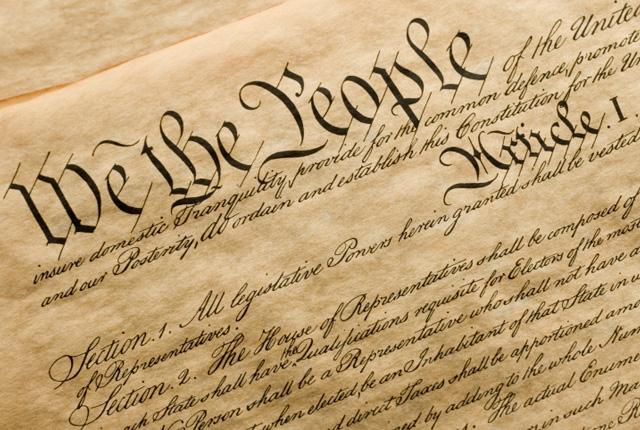 We the People of the United
insure domestic Tranquility, provide for the common defence, promote
and our Posterity, do ordain and establish this Constitution for the Un
Article. I.
Section. 1. All legislative Powers herein granted shall be vested
of Representatives.
Section. 2. The House of Representatives shall be composed of
ach State shall have the Qualifications requisite for Electors of the most
Person shall be a Representative who shall not have a
when elected, be an Inhabitant of that State in
and direct Taxes shall be apportioned am
by adding to the whole Num
The actual Enume
in such Ma